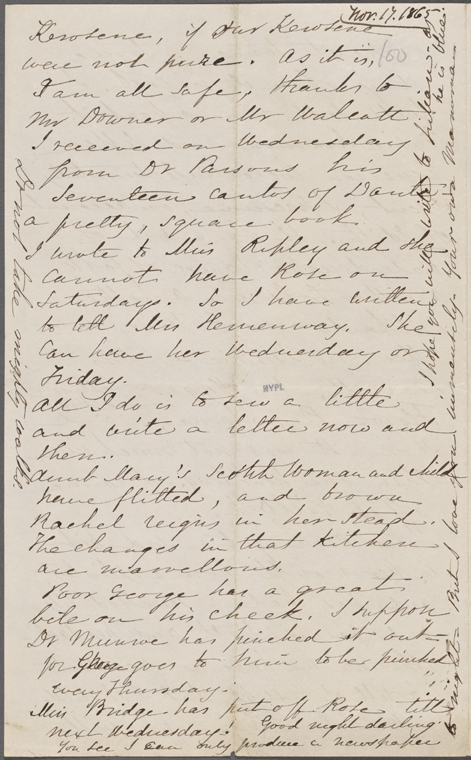 Nov. 17. 1865
Kerosene, if our Kerosene
were not pure. As it is,
100
I am all safe, thanks to
Mr Downer or Mr Walcott
I received on Wednesday
from Dr Parsons his
Seventeen Cantos of Dante
a pretty, square book
I wrote to Miss Ripley and she
cannot have Rose on
Saturdays. So I have written
to tell Mrs Hemenway. She
can have her Wednesday or
Friday.
NYPL
All I do is to sew a little
and write a letter now and
then.
Aunt Mary's Scotch Woman and Child
have flitted, and brown
Rachel reigns in her stead.
The changes in that Kitchen
are marvellous.
Poor George has a great
bile on his cheek. I suppose
Dr Munroe has pinched it out
for George goes to him to be pinched
every Thursday.
Miss Bridge has put off Rose till
next Wednesday. Good night darling
You see I can only produce a newspaper
to-night. But I love you immensely. Your own Mamma
I hope you will write to Julian as
he is blue.
Do not take nightly walks